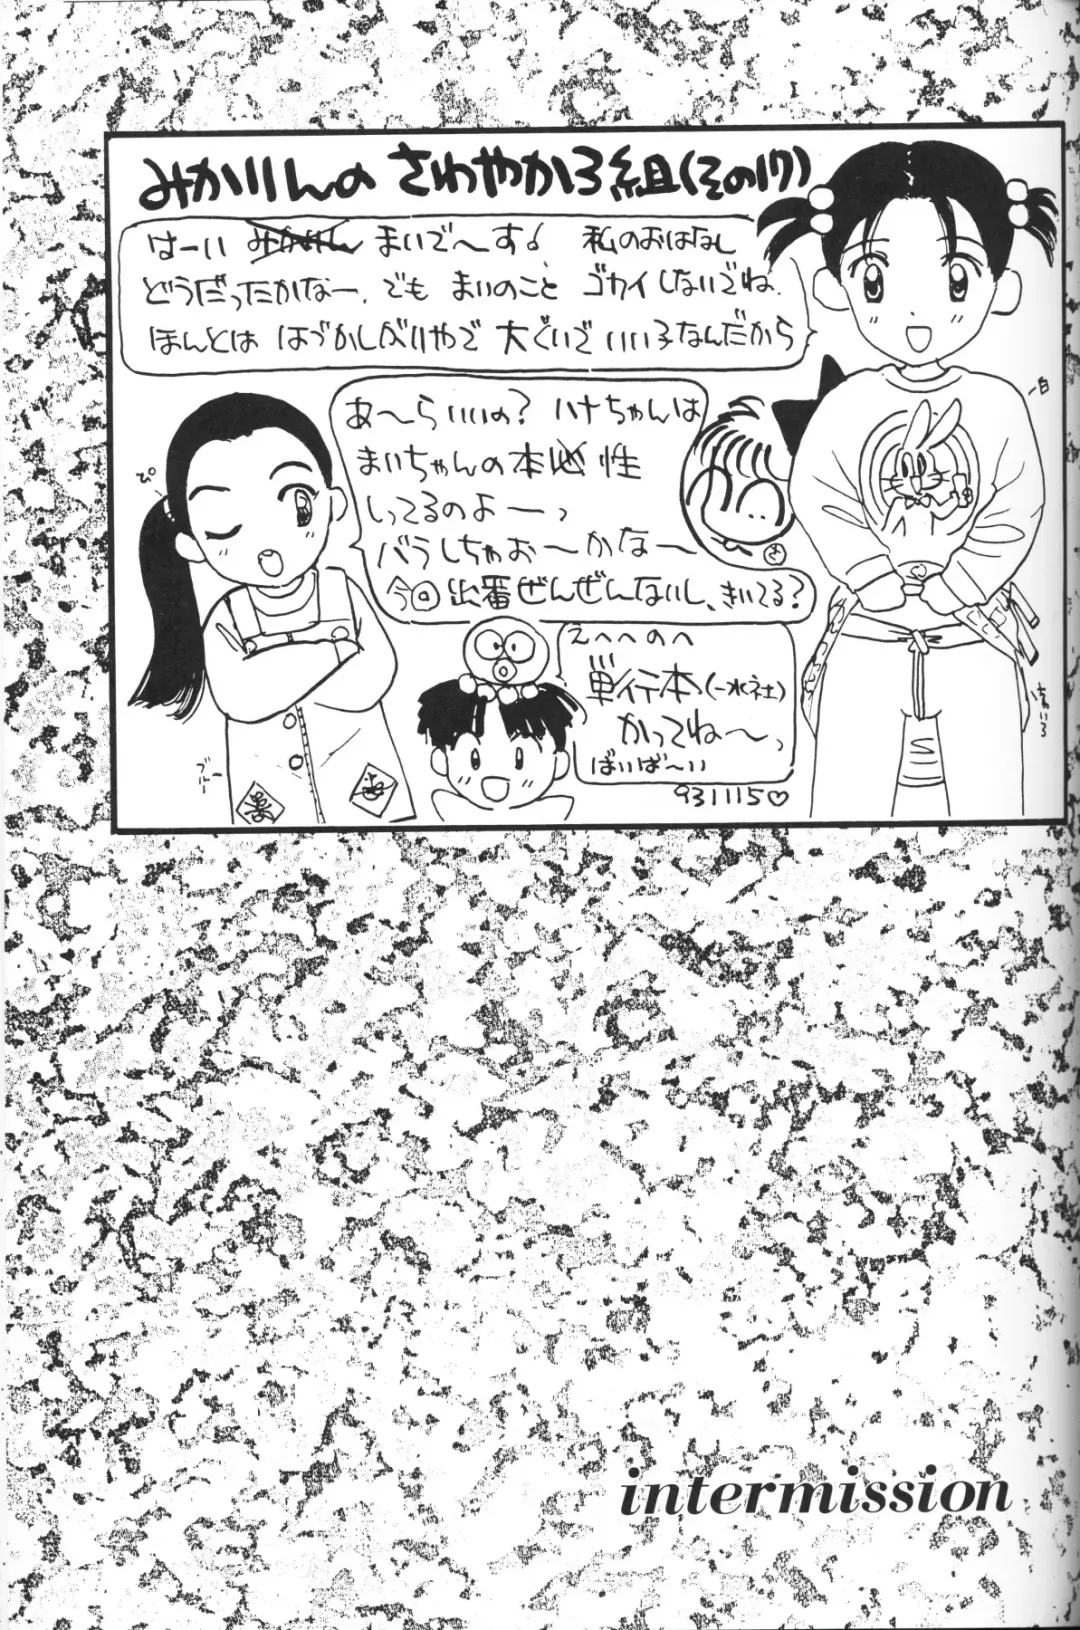 みかりんの さわやか3組(その17)
はーい みかりん まいで〜す♪ 私のおはなし
どうだったかなー、でも まいのこと ゴカイしないでね、
ほんとは はづかしがりやで 大ぐいで いい子なんだから
あ〜らいいの? ハナちゃんは
まいちゃんの本性
しってるのよーっ
バラしちゃお〜かな〜
今回 出番ぜんぜんないし、きいてる?
えへへのへ
単行本(一水社)
かってね〜っ
ばいば〜い
931115♡
ぴ
ブルー
白
intermission